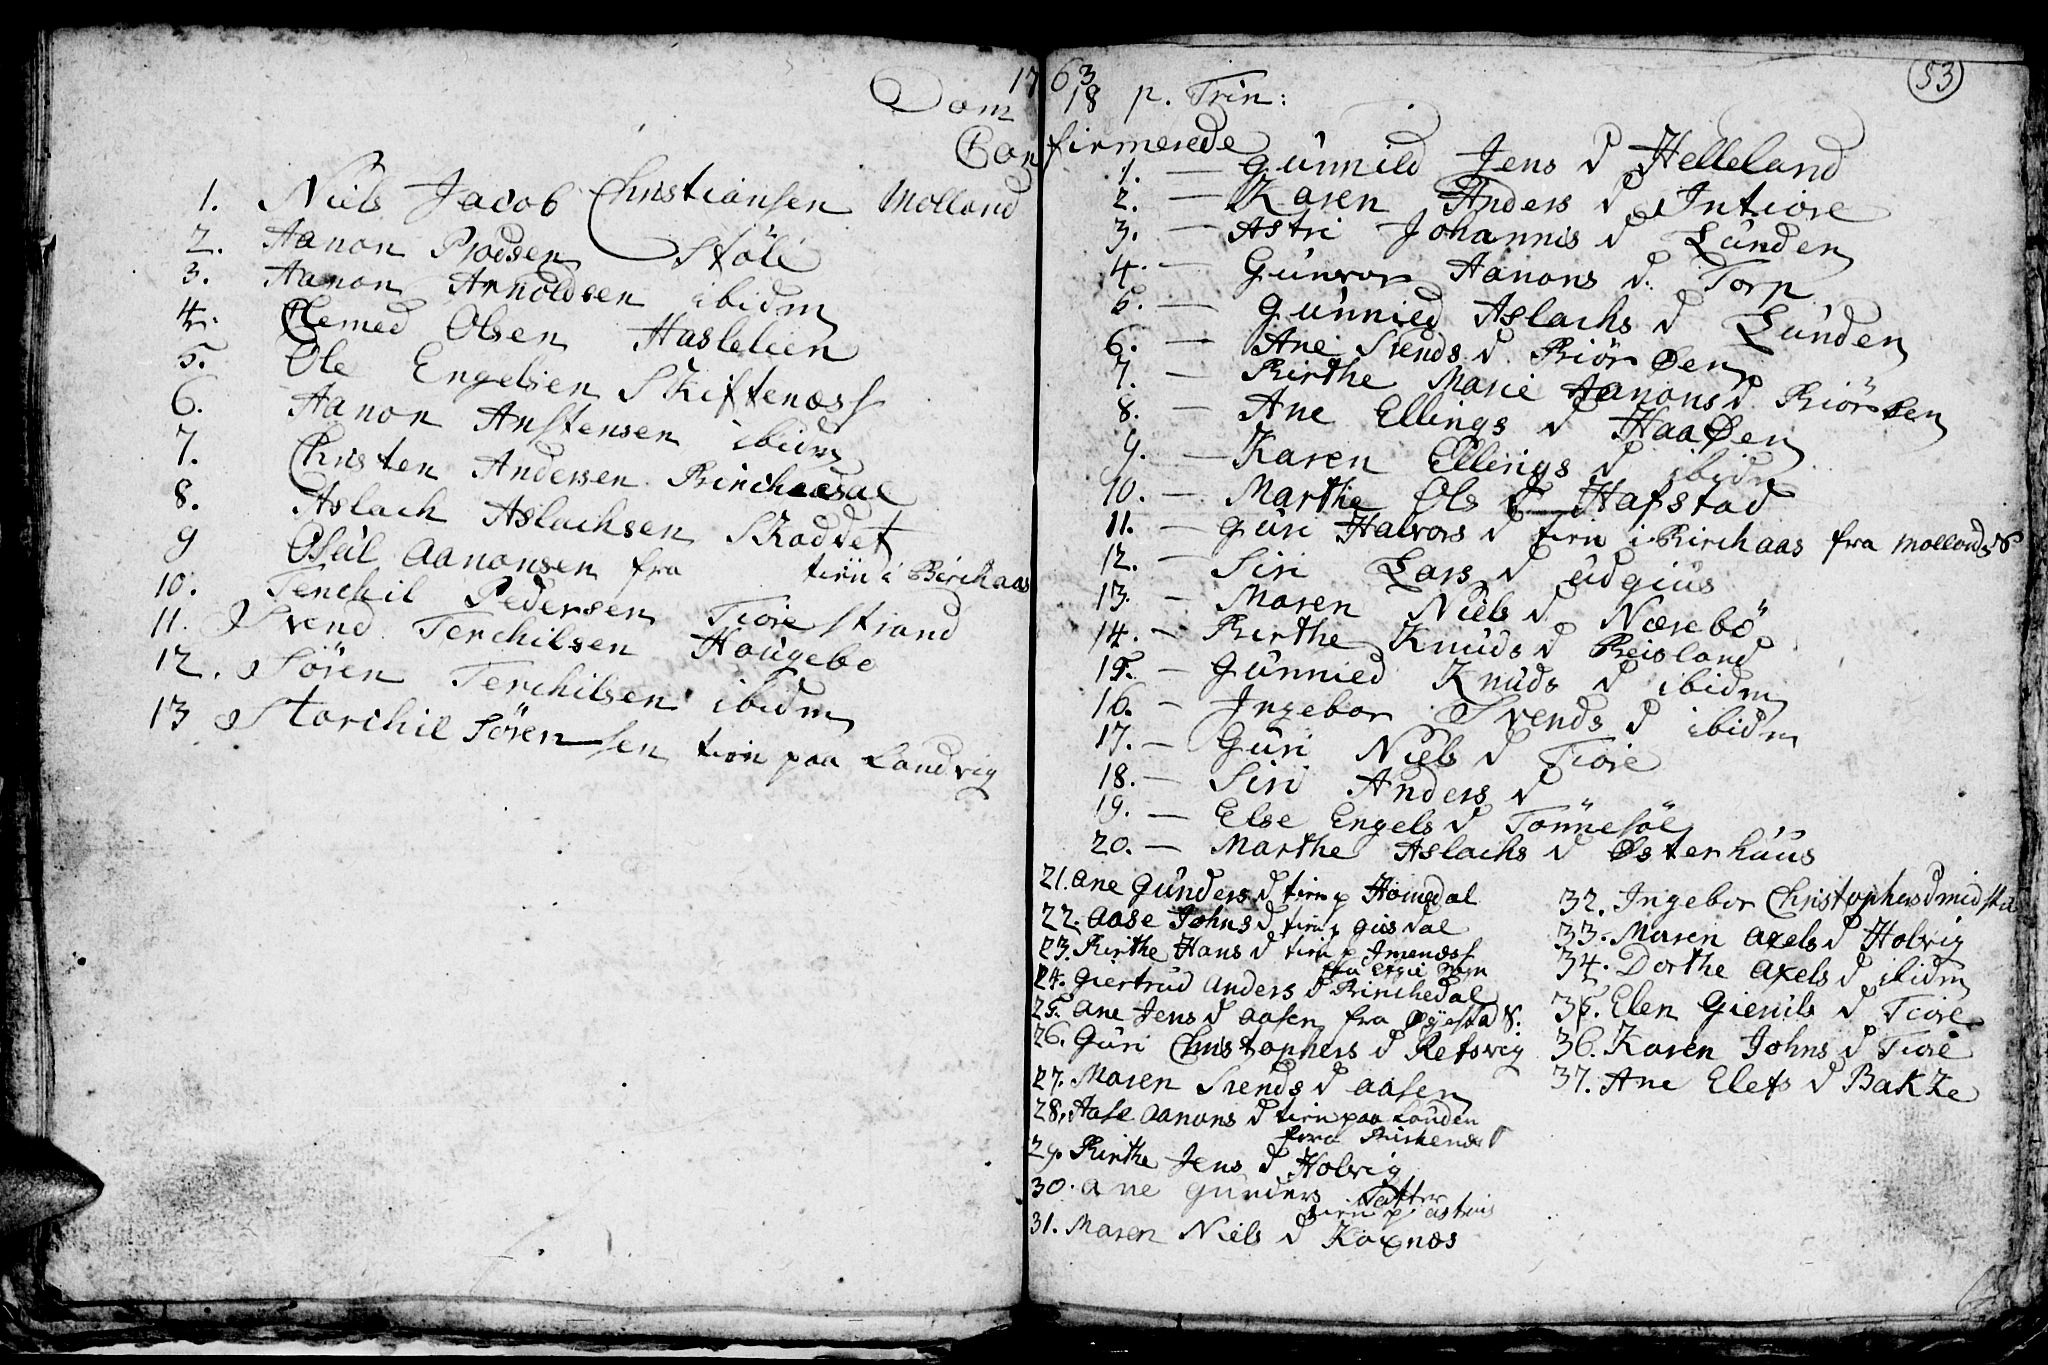 1763
53
Dom 18 p. Trin:
Confirmerede
1. Niels Jacob Christiansen Molland
2. Aanon Rodsen Støle
3. Aanon Arnoldsen ibidm
4. Olsen Haslelien
5. Ole Engelsen Skiftenæss
6. Aanon Anstensen ibidm
7. Christen Andersen Birchedal
8. Aslach Aslachsen Skoddet
9 Aanonsen fra tien i Birchaas
10. Terchil Pedersen Fiære strand
11. Svend Terchilsen Haugebo
12. Sören Terchilsen ibidm
13 Storchil Sörensen tien paa Landvig
1. — Gunnild Jens d Helleland
2. — Karen Anders d Intiøre
3. — Astri Johannis d Lunden
4. — Gunvor Aanons d. Torp
5. — Gunnild Aslachs d Lunden
6. — Ane Svends d. Biör Øen
7. — Birthe Marie Aanons d. Biörøen
8. — Ane Ellings d Haaøen
9. — Karen Ellings d ibidm
10. — Marthe Ols d Hafstad
11. — Guri Halvors d tien i Birchaas fra Mollands S
12. — Siri Lars d udgius
13. — Maren Niels d Nærebö
14. — Birthe Knuds d Reisland
15. — Gunnild Knuds d ibidm
16. — Ingebor Svends d ibidm
17. — Guri Niels d Fiære
18. — Siri Anders d
19. — Else Engels d Tönnesöl
20. — Marthe Aslachs d Østerhuus
21. Ane Gunders d tien p Homedal
22. Aase Johns d tien p gusdal
23. Birthe Hans d tien p Imenæss
24. Giertrud Anders d Birchedal
25. Ane Jens d Aasen fra Øyestad S.
26. Guri Christophers d Refsvig
27. Maren Svends d Aasen
28. Aase Aanons d tien paa Lunden
fra Birkenæs
29. Birthe Jens d Holvig
30. Ane Gunders Datter
tien p
31. Maren Niels d Kognæs
32. Ingebor Christophers d
33. Maren Axels d Holvig
34. Dorthe Axels d ibidm
35. Elen Gieruls d Fiære
36. Karen Johns d Fiære
37. Ane Elefs d Bakke